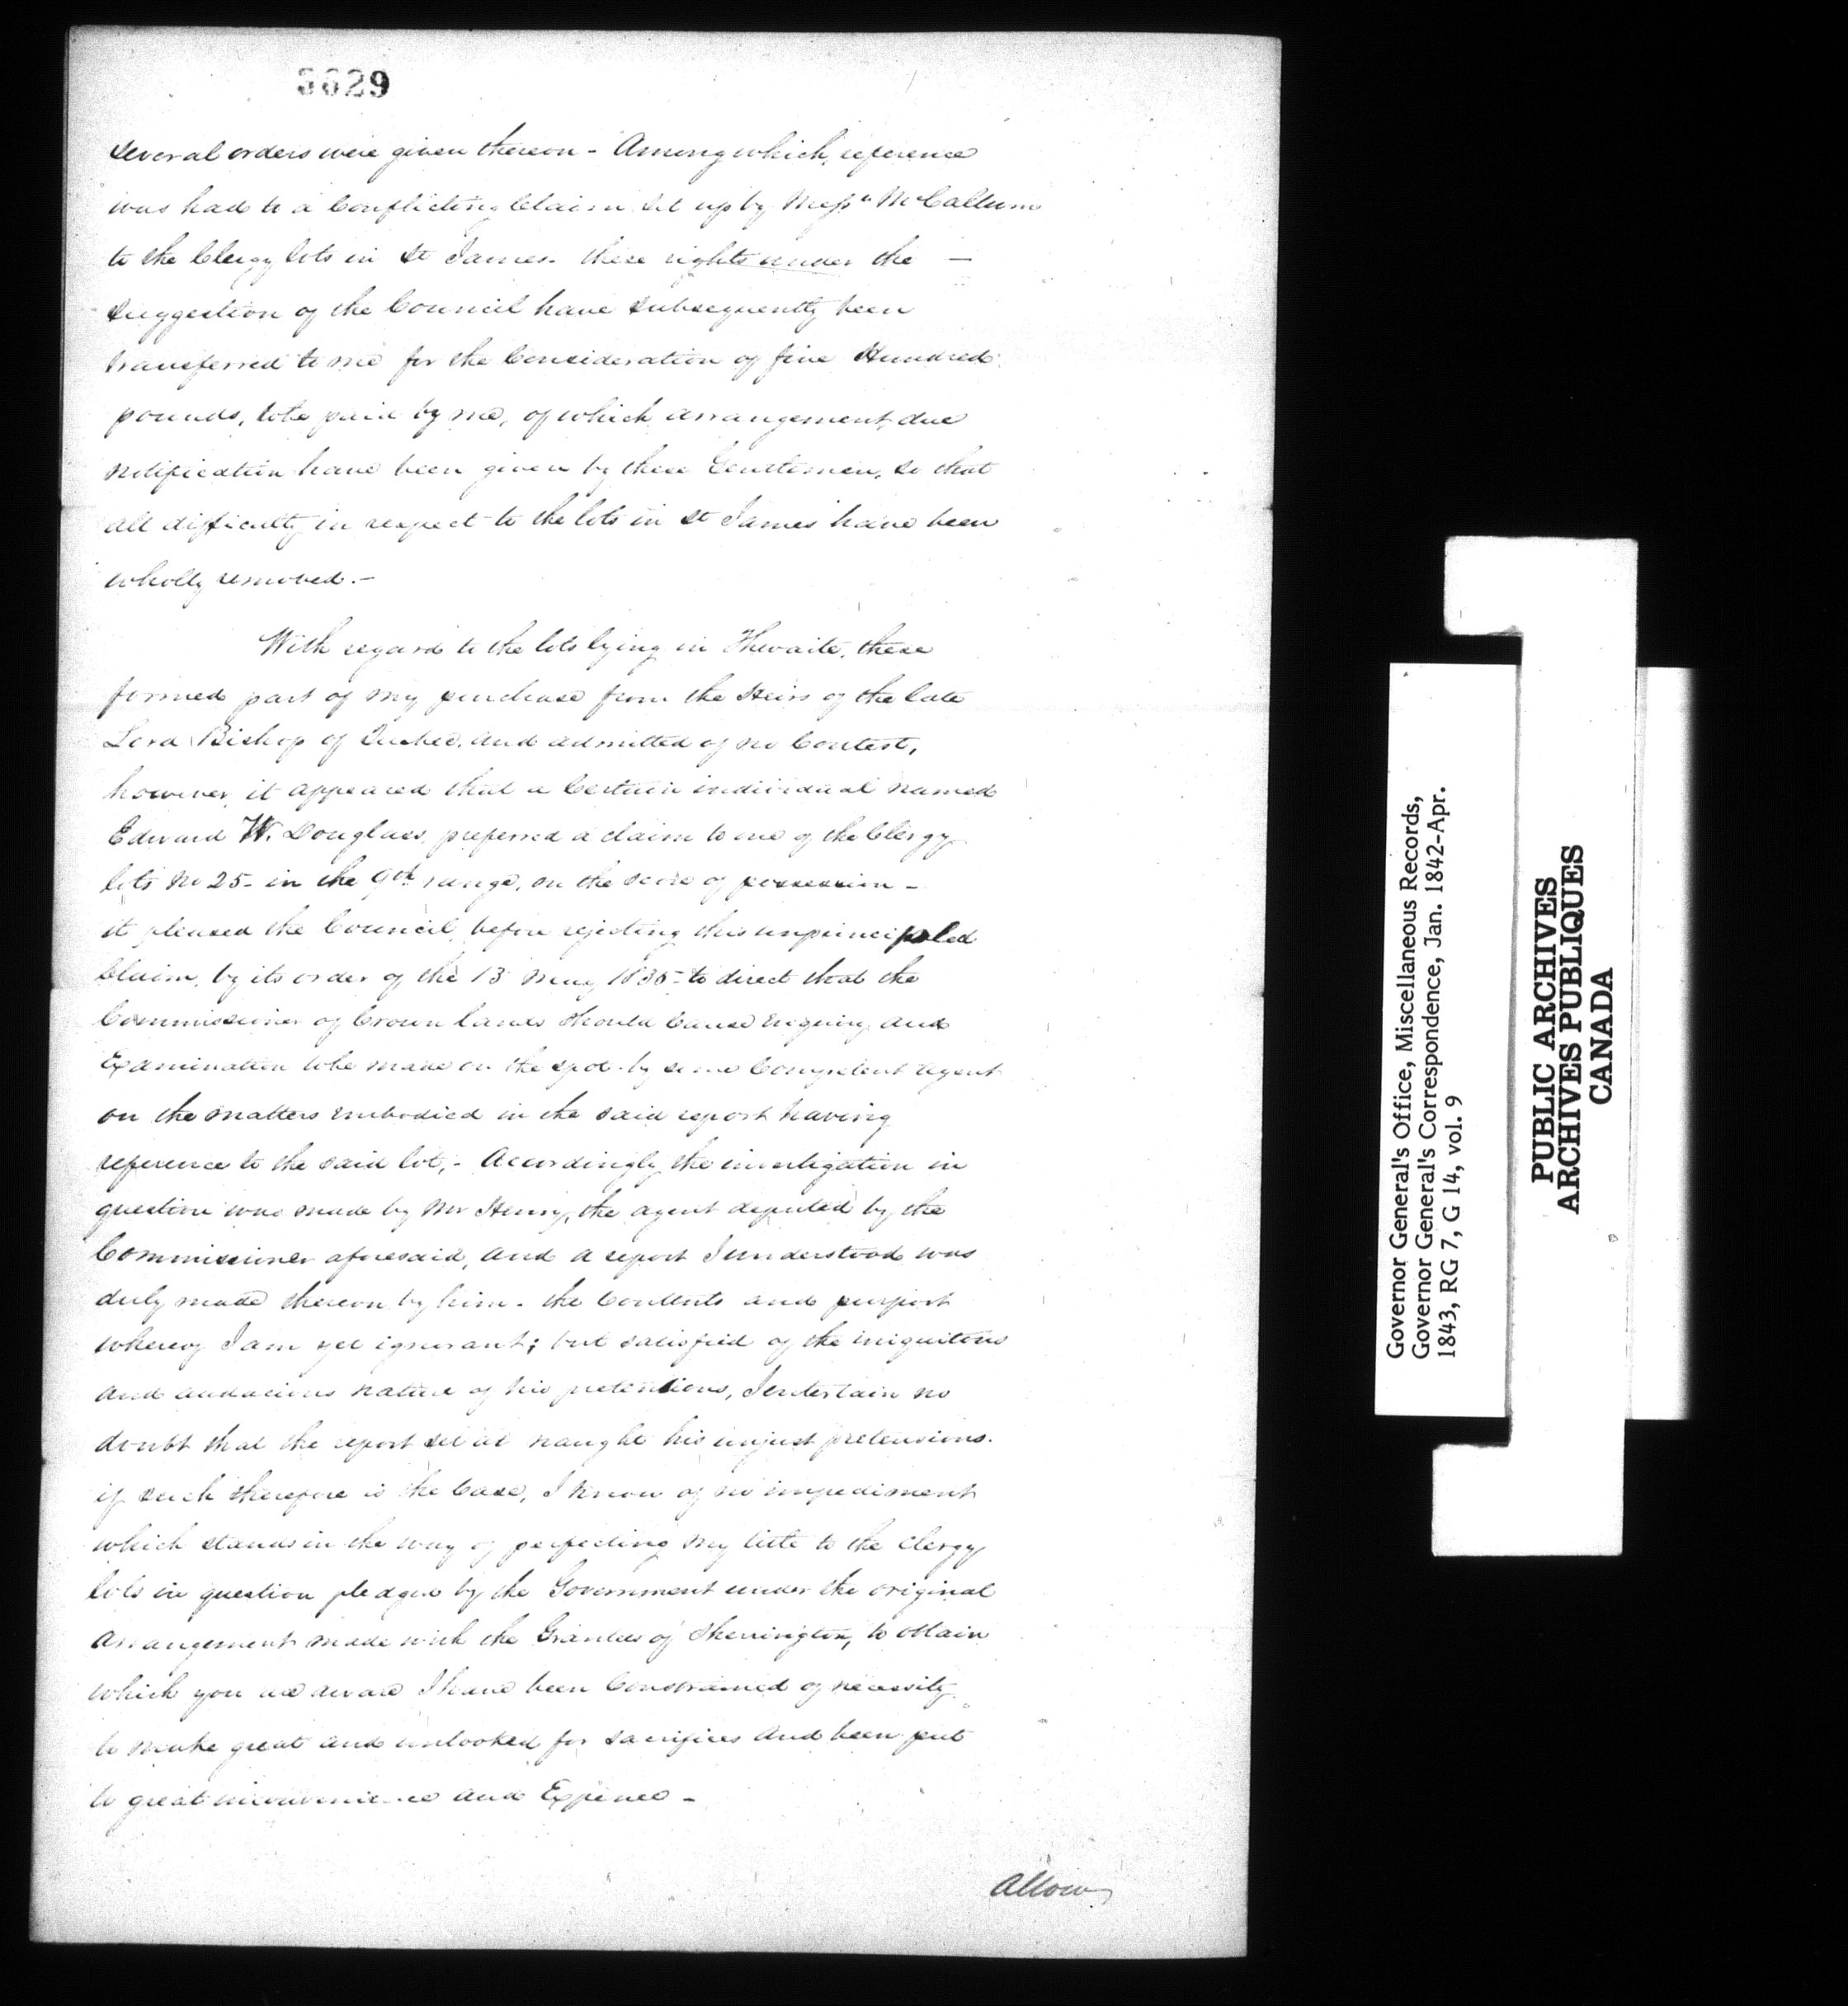 3629
several orders were given thereon - Among which, reference
was had to a Conflicting Claim set up by Messrs McCallum
to the Clergy lots in St James. these rights under the —
suggestion of the Council have subsequently been
transferred to me for the Consideration of five Hundred
pounds, to be paid by me, of which arrangement, due
notification have been given by these Gentlemen, so that
all difficulty in respect to the lots in St James have been
wholly removed. -
With regard to the lots lying in Thwaite, these
formed part of my purchase from the Heirs of the late
Lord Bishop of Quebec, and admitted of no Contest,
however, it appeared that a Certain individual named
Edward W. Douglass, preferred a claim to one of the Clergy
lots No 25 - in the 9th range, on the score of possession -
it pleased the Council, before rejecting this unprincipled
Claim, by its order of the 13 May 1835 - to direct that the
Commissioner of Crown Lands should Cause Enquiry and
Examination to be made on the spot by some Competent agent
on the matters embodied in the said report having
reference to the said lot, - Accordingly the investigation in
question was made by Mr Henry, the agent deputed by the
Commissioner aforesaid, and a report I understood was
duly made thereon by him - the Contents and purport
whereof I am yet ignorant; but satisfied of the iniquitous
and audacious nature of his pretentions, I entertain no
doubt that the report set at naught his unjust pretensions.
if such therefore is the Case, I know of no impediment
which stands in the way of perfecting my title to the Clergy
lots in question pledged by the Government under the original
arrangement made with the Grantees of Sherrington, to obtain
which you are aware I have been Constrained of necessity
to make great and unlooked for sacrifices and been put
to great inconvenience and Expence -
Allow
Governor General's Office, Miscellaneous Records,
Governor General's Correspondence, Jan. 1842-Apr.
1843, RG 7, G 14, vol. 9
PUBLIC ARCHIVES
ARCHIVES PUBLIQUES
CANADA